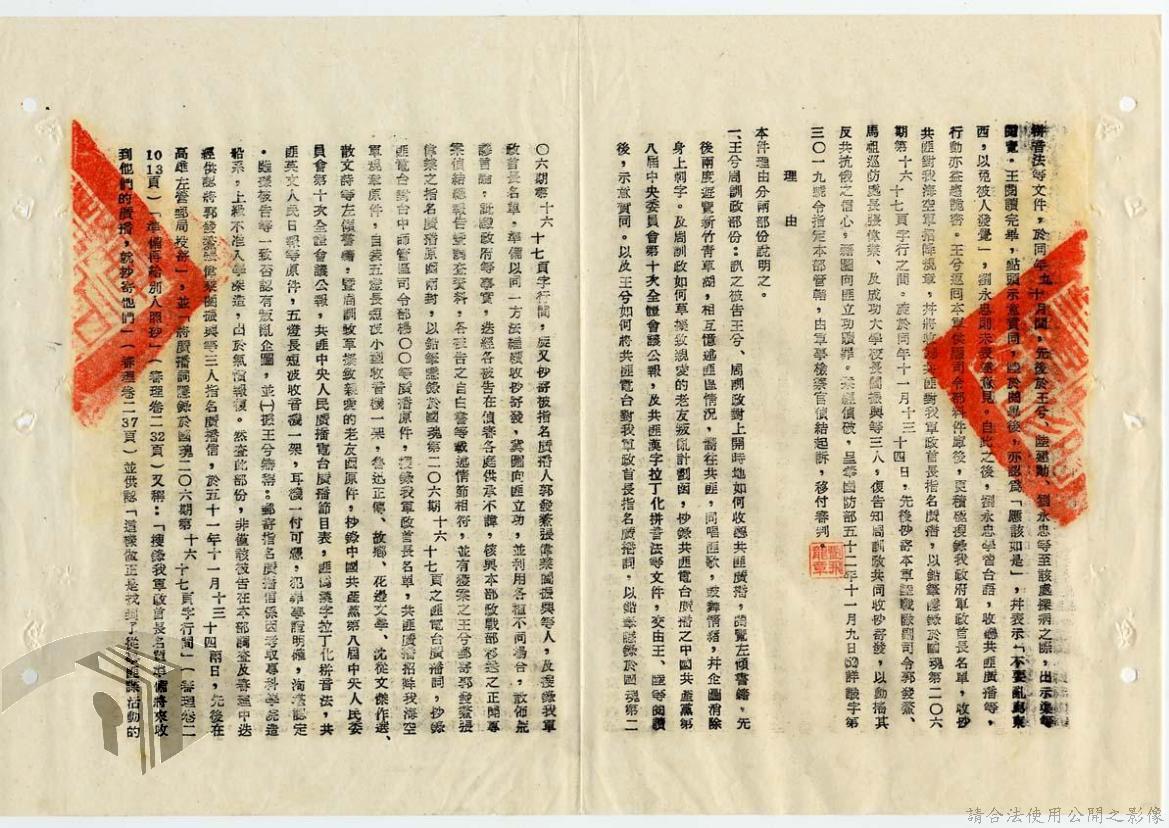 拼音法等文件，於同年九十月間，先後於王兮、陸運勳、劉永忠等至該處探病之際，出示渠等
閱覽。王閱讀完畢，點頭示意實同，陸於閱畢後，亦認為「應該如是」，并表示「不要亂寫東
西，以免被人發覺」，劉永忠則未表達意見。自此之後，劉永忠學習台語，收聽共匪廣播等，
行動亦至為詭密。王兮返回本軍供應司令部料件庫後，更積極搜錄我政府軍政首長名單，收抄
共匪對我海空軍招降規章，并將收抄共匪對我軍政首長指名廣播，以鉛筆謄錄於國魂第二〇六
期第十六 十七頁字行之間。旋於同年十一月十三 十四日，先後抄寄本軍陸戰隊副司令郭發鰲、
馬祖巡防處長張偉業、及成功大學校長閻振興等三人，復告知周訓政共同收抄寄發，以動搖其
反共抗俄之信心，藉圖向匪立功贖罪。案經偵破，呈奉國防部五十二年十一月九日52詳議字第
三〇一九號令指定本部管轄，由軍事檢察官偵結起訴，移付審判。
理 由
本件理由分兩部份說明之。
一、王兮周訓政部份：訊之被告王兮、周訓政對上開時地如何收聽共匪廣播，閱覽左傾書籍，先
後兩度遊覽新竹青草湖，相互憶述匪區情況，嚮往共匪，同唱匪歌，或舞情緒，并企圖消除
身上刺字。及周訓政如何草擬致親愛的老友叛亂計劃函，抄錄共匪電台廣播之中國共產黨第
八屆中央委員會第十次全體會議公報，及共匪漢字拉丁化拼音法等文件，交由王、陸等閱讀
後，示意實同。以及王兮如何將共匪電台對我軍政首長指名廣播詞，以鉛筆謄錄於國魂第二
〇六期第十六 十七頁字行間，旋又抄寄被指名廣播人郭發鰲張偉業閻振興等人，及搜錄我軍
政首長名單，準備以同一方法繼續收抄寄發，冀圖向匪立功，並利用各種不同場合，散佈荒
謬言論，詆毀政府等事實，迭經各被告在偵審各庭供承不諱，核與本部政戰部移送之正開專
案偵結總報告暨調查資料，各被告之自白書等載述情節相符，並有發案之王兮郵寄郭發鰲張
偉業之指名廣播原函兩封，以鉛筆謄錄於國魂第二〇六期十六 十七頁之匪電台廣播詞，抄錄
匪電台對台中師管區司令部楊〇〇等廣播原件，搜錄我軍政首長名單，共匪廣播招降我海空
軍規章原件，自裝五燈長短波小型收音機一架，魯迅正傳、故鄉、花邊文學、沈從文傑作選、
散文詩等左傾書籍，暨周訓政草擬致親愛的老友函原件，抄錄中國共產黨第八屆中央人民委
員會第十次全體會議公報，共匪中央人民廣播電台廣播節目表，匪偽漢字拉丁化拼音法，共
匪英文人民日報等原件，五燈長短波收音機一架，耳機一付可憑，犯罪事證明確，洵堪認定
。雖據被告等一致否認有叛亂企圖，並㈠據王兮辯稱：郵寄指名廣播信係因考取專科學校造
船系，上級不准入學深造，出於氣憤報復。然查此部份，非僅該被告在本部調查及審理中迭
經供認將郭發鰲張偉業閻振興等三人指名廣播信，於五十一年十一月十三 十四兩日，先後在
高雄左營郵局投寄」，並「將廣播詞謄錄於國魂二〇六期第十六 十七頁字行間」（審理卷二
1013頁）「準備再給別人照抄」（審理卷二32頁）又稱：「搜錄我軍政首長名單準備將來收
到他們的廣播，就抄寄他們」（審理卷二37頁）並供認「這樣做正是找到了從事匪諜活動的
請合法使用公開之影像